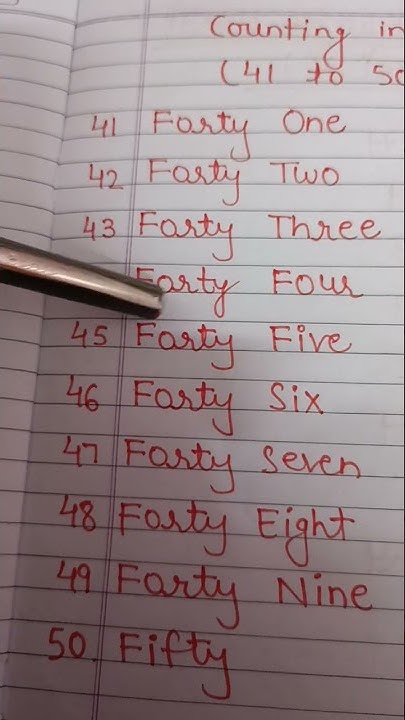 Counting in
(41 to 50
41 Forty One
42 Forty Two
43 Forty Three
Forty Four
45 Forty Five
46 Forty Six
47 Forty Seven
48 Forty Eight
49 Forty Nine
50 Fifty